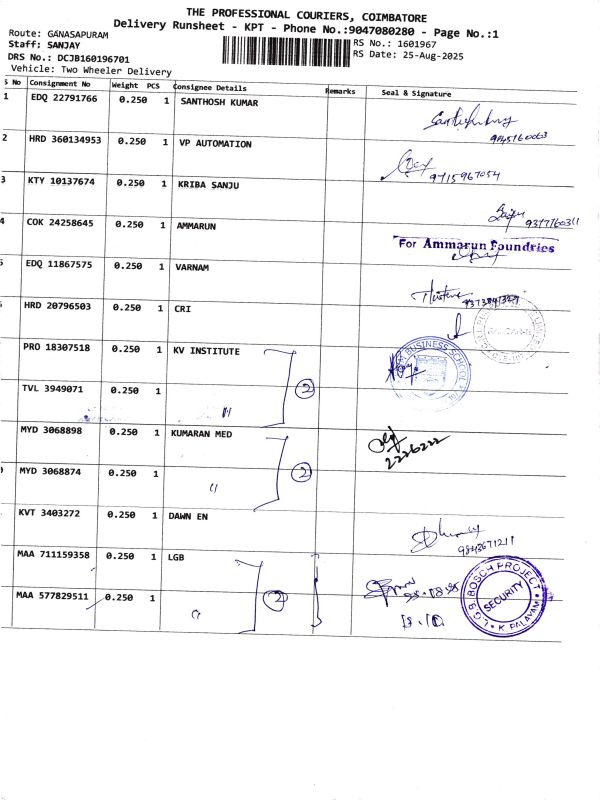 THE PROFESSIONAL COURIERS, COIMBATORE
Delivery Runsheet - KPT - Phone No.:9047080280 - Page No.:1
Route: GANASAPURAM
Staff: SANJAY
RS No.: 1601967
DRS No.: DCJB160196701
RS Date: 25-Aug-2025
Vehicle: Two Wheeler Delivery
S No Consignment No Weight PCS Consignee Details Remarks Seal & Signature
1 EDQ 22791766 0.250 1 SANTHOSH KUMAR
2 HRD 360134953 0.250 1 VP AUTOMATION
9715967054
3 KTY 10137674 0.250 1 KRIBA SANJU
4 COK 24258645 0.250 1 AMMARUN
For Ammarun Foundries
EDQ 11867575 0.250 1 VARNAM
HRD 20796503 0.250 1 CRI
PRO 18307518 0.250 1 KV INSTITUTE
2
BUSINESS SCHOOL
TVL 3949071 0.250 1 "
MYD 3068898 0.250 1 KUMARAN MED
2
2226222
MYD 3068874 0.250 1 "
KVT 3403272 0.250 1 DAWN EN
9843671211
MAA 711159358 0.250 1 LGB
2
MAA 577829511 0.250 1 "
L.G.B BOSCH PROJECT
SECURITY
K PALAYAM